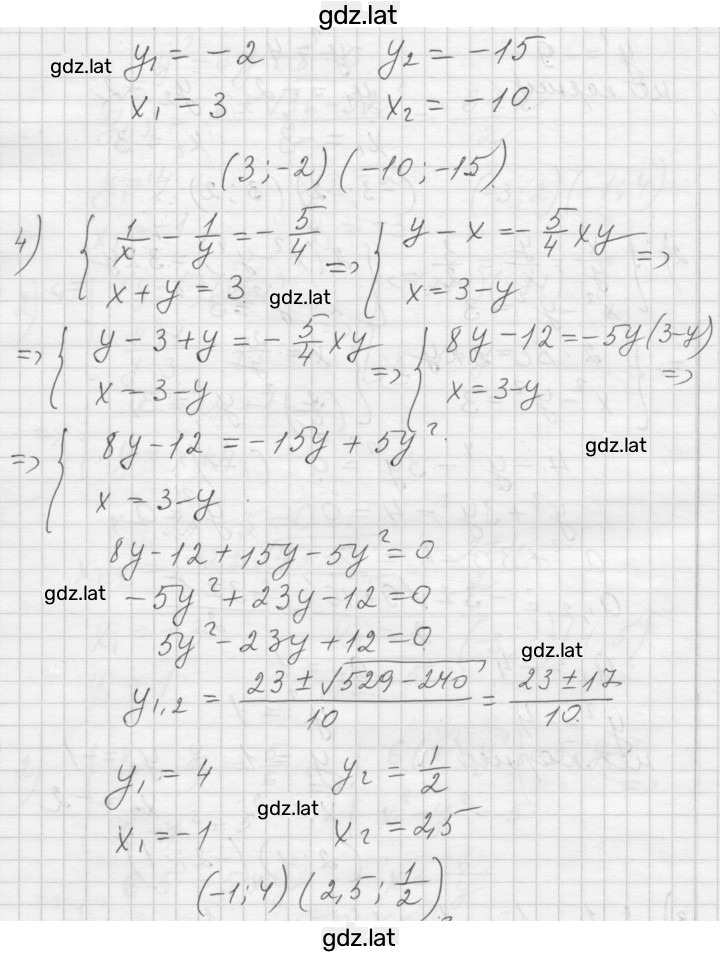 gdz.lat
gdz.lat y₁ = -2 y₂ = -15
x₁ = 3 x₂ = -10
(3; -2) (-10; -15)
4) { 1/x - 1/y = - 5/4 => { y - x = - 5/4 xy =>
x + y = 3 gdz.lat x = 3 - y
=> { y - 3 + y = - 5/4 xy => { 8y - 12 = -5y(3-y) =>
x = 3 - y x = 3 - y
=> { 8y - 12 = -15y + 5y² gdz.lat
x = 3 - y
8y - 12 + 15y - 5y² = 0
gdz.lat -5y² + 23y - 12 = 0
5y² - 23y + 12 = 0 gdz.lat
y₁,₂ = (23 ± √(529 - 240))/10 = (23 ± 17)/10
y₁ = 4 y₂ = 1/2
gdz.lat
x₁ = -1 x₂ = 2,5
(-1; 4) (2,5; 1/2)
gdz.lat